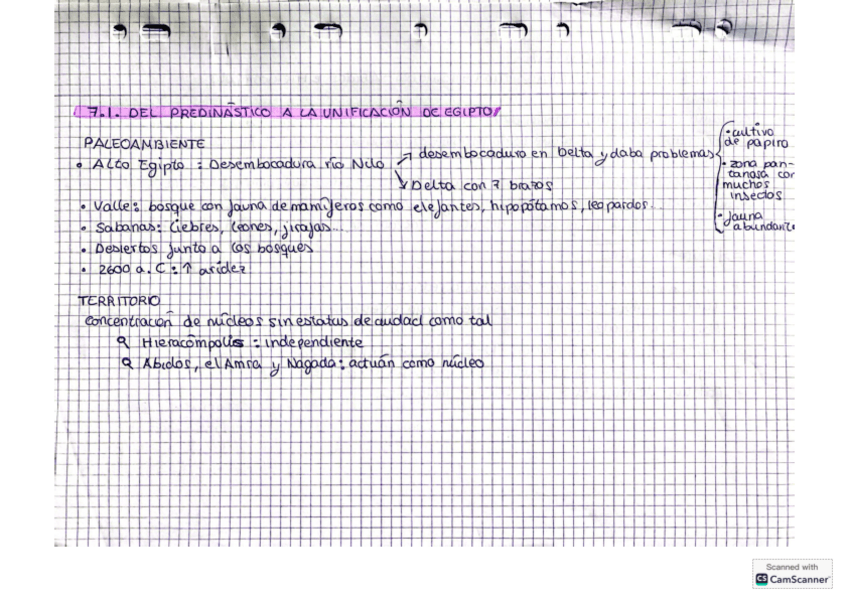 7.1. DEL PREDINÁSTICO A LA UNIFICACIÓN DE EGIPTO
PALEOAMBIENTE
• Alto Egipto : Desembocadura río Nilo
desembocadura en Delta y daba problemas
• cultivo de papiro
• zona pantanosa con muchos insectos
• fauna abundante
Delta con 7 brazos
• Valle: bosque con fauna de mamíferos como elefantes, hipopótamos, leopardos...
• Sabanas: liebres, leones, jirafas...
• Desiertos junto a los bosques
• 2600 a.C : ↑ aridez
TERRITORIO
concentración de núcleos sin estatus de ciudad como tal
Hieracómpolis : independiente
Abidos, el Amra y Nagada : actuán como núcleo
Scanned with
CS CamScanner